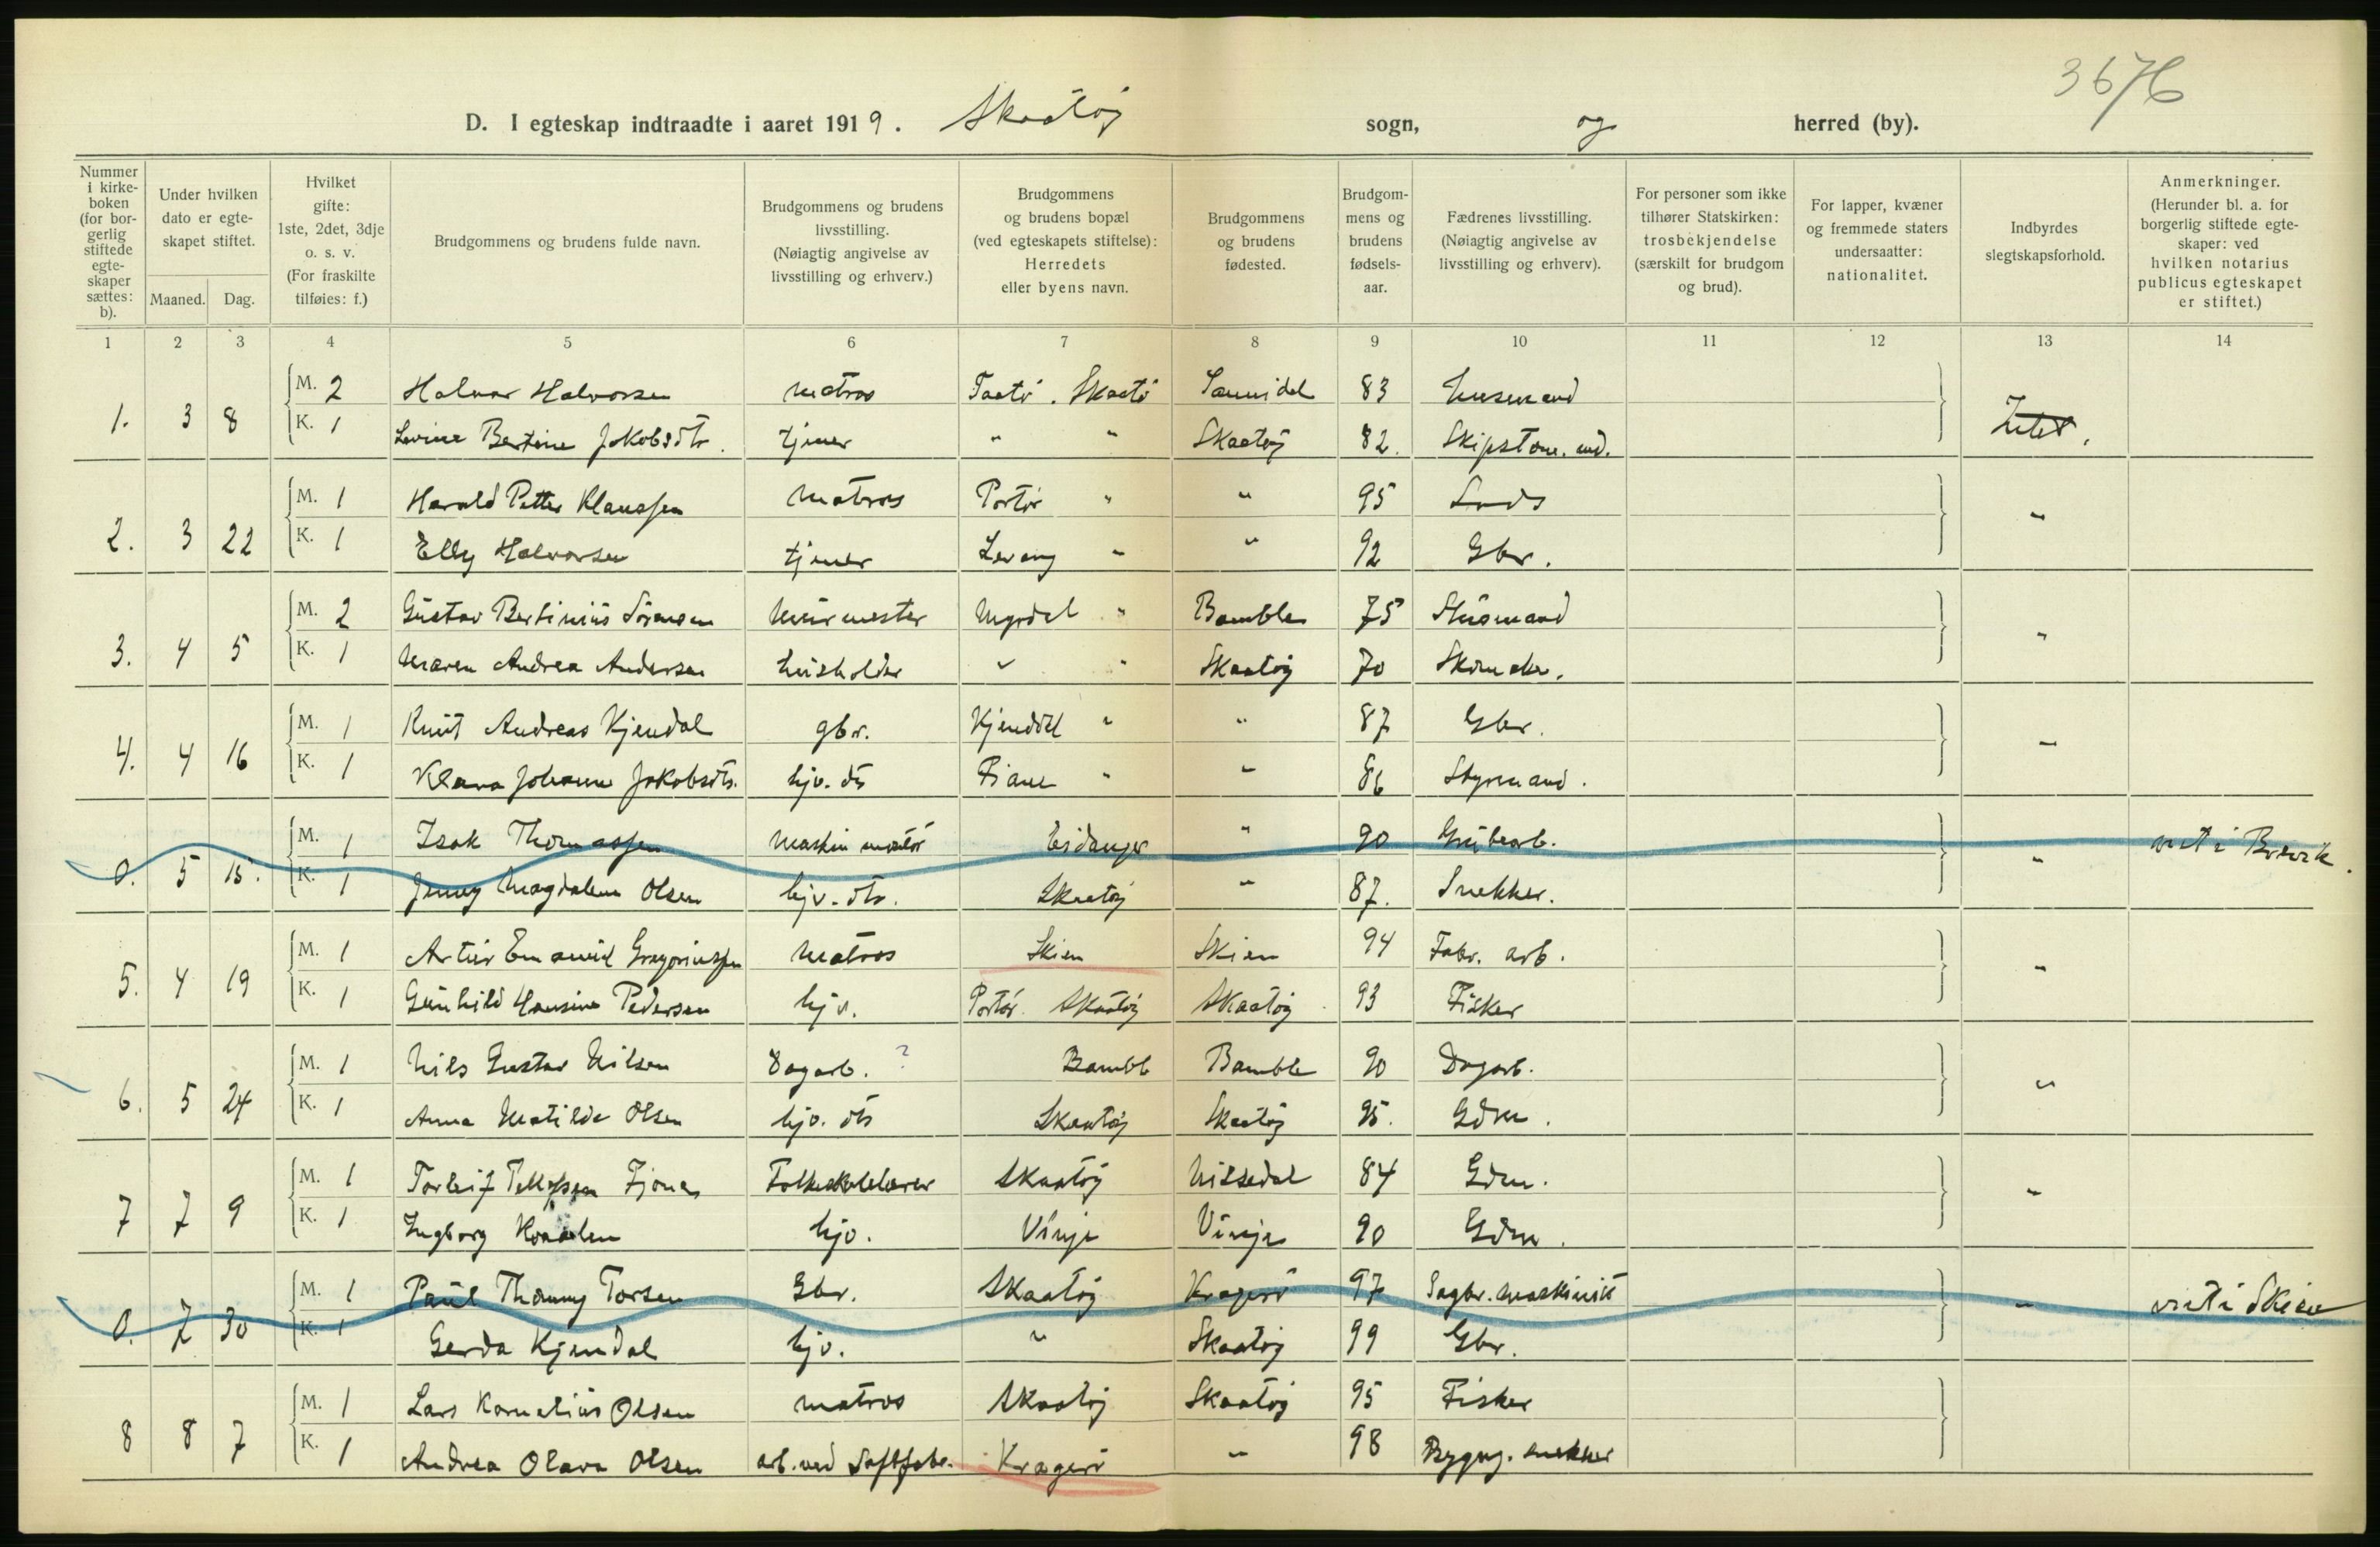 3676
D. I egteskap indtraadte i aaret 1919. Skaatöj sogn, og herred (by).
Nummer i kirke-boken (for bor-gerlig stiftede egte-skaper sættes: b).
Under hvilken dato er egte-skapet stiftet.
Maaned. Dag.
Hvilket gifte: 1ste, 2det, 3dje o. s. v. (For fraskilte tilføies: f.)
Brudgommens og brudens fulde navn.
Brudgommens og brudens livsstilling. (Nøiagtig angivelse av livsstilling og erhverv.)
Brudgommens og brudens bopæl (ved egteskapets stiftelse): Herredets eller byens navn.
Brudgommens og brudens fødested.
Brudgom-mens og brudens fødsels-aar.
Fædrenes livsstilling. (Nøiagtig angivelse av livsstilling og erhverv).
For personer som ikke tilhører Statskirken: trosbekjendelse (særskilt for brudgom og brud).
For lapper, kvæner og fremmede staters undersaatter: nationalitet.
Indbyrdes slegtskapsforhold.
Anmerkninger. (Herunder bl. a. for borgerlig stiftede egte-skaper: ved hvilken notarius publicus egteskapet er stiftet.)
1 2 3 4 5 6 7 8 9 10 11 12 13 14
M. 2 Halvor Halvorsen matros Taatö. Skaatö Sannidal 83 Husmand
1. 3 8 K. 1 Lovine Bertine Jakobsdtr. tjener " " Skaatöj 82. Skipstøm. md. Intet.
M. 1 Harald Petter Klaussen Matros Portör " " 95 Lods
2. 3 22 K. 1 Elly Halvorsen tjener Levang " " 92 Gbr. "
M. 2 Gustav Bertinius Sörensen Murmester Myrdal " Bamble 75 Husmand
3. 4 5 K. 1 Maren Andrea Andersen husholder " " Skaatöj 70 Skomaker. "
M. 1 Knut Andreas Kjendal gbr. Kjendal " " 87 Gbr.
4. 4 16 K. 1 Klara Johanne Jakobsdtr. hjv. dtr Fiane " " 86 Styrmand. "
M. 1 Isak Thomassen Maskinmontör Eidanger " 90 Grubearb. viet i Brevik.
0. 5 15. K. 1 Jenny Magdalene Olsen hjv. dtr. Skaatöj " 87. Snekker. "
M. 1 Artur Emanuel Gregoriussen Matros Skien Skien 94 Fabr. arb.
5. 4 19 K. 1 Gunhild Hansine Pedersen hjv. Portör Skaatöj Skaatöj 93 Fisker "
M. 1 Nils Gustav Nilsen Dagarb. ? Bambl Bamble 90 Dagarb.
6. 5 24 K. 1 Anna Matilde Olsen hjv. dtr Skaatöj Skaatöj 95. Gdm. "
M. 1 Torleif Tellefsen Fjone Folkeskolelærer Skaatöj Nissedal 84 Gdm.
7 7 9 K. 1 Ingborg Kvaalen hjv. Vinje Vinje 90 Gdm. "
M. 1 Paul Thommy Torsen Gbr. Skaatöj Kragerö 97 Sagbr. maskinist viet i Skien
0. 7 30 K. 1 Gerda Kjendal hjv. " Skaatöj 99 Gbr. "
M. 1 Lars Kornelius Olsen matros Skaatöj Skaatöj 95 Fisker
8 8 7 K. 1 Andrea Olava Olsen arb. ved Saftfabr. Kragerö " 98 Bygng. snekker